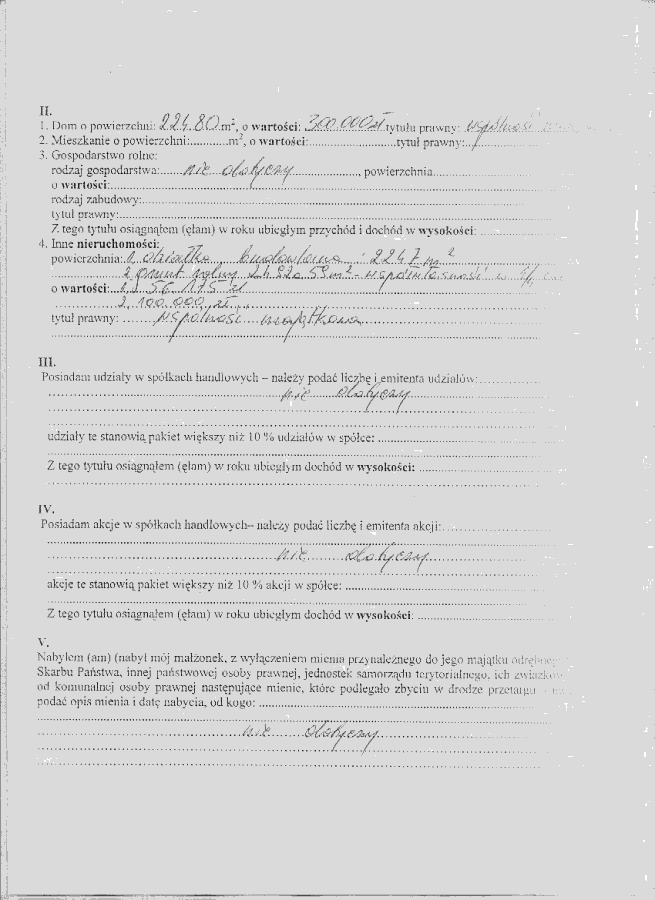 II.
1. Dom o powierzchni: 224.80 m², o wartości: 300.000 zł tytułu prawny: wspólność
2. Mieszkanie o powierzchni:...........m², o wartości:...........................tytuł prawny:.../
3. Gospodarstwo rolne:
rodzaj gospodarstwa:...... nie dotyczy ...................., powierzchnia.....................
o wartości:.....................
rodzaj zabudowy:.....................
tytuł prawny:.....................
Z tego tytułu osiągnąłem (ęłam) w roku ubiegłym przychód i dochód w wysokości: .....................
4. Inne nieruchomości:
powierzchnia:.1. działka budowlana : 2247 m²
2. grunt rolny m² - współwłasność w
o wartości: 1. 56 175 zł
2. 100.000 zł
tytuł prawny: ...... wspólność majątkowa
.....................
III.
Posiadam udziały w spółkach handlowych – należy podać liczbę i emitenta udziałów:.....................
nie dotyczy
.....................
.....................
udziały te stanowią pakiet większy niż 10 % udziałów w spółce: .....................
.....................
Z tego tytułu osiągnąłem (ęłam) w roku ubiegłym dochód w wysokości: .....................
.....................
IV.
Posiadam akcje w spółkach handlowych– należy podać liczbę i emitenta akcji:.....................
.....................
nie dotyczy
akcje te stanowią pakiet większy niż 10 % akcji w spółce: .....................
.....................
Z tego tytułu osiągnąłem (ęłam) w roku ubiegłym dochód w wysokości: .....................
V.
Nabyłem (am) (nabył mój małżonek, z wyłączeniem mienia przynależnego do jego majątku
Skarbu Państwa, innej państwowej osoby prawnej, jednostek samorządu terytorialnego, ich
od komunalnej osoby prawnej następujące mienie, które podlegało zbyciu w drodze przetargu
podać opis mienia i datę nabycia, od kogo: .....................
.....................
nie dotyczy
.....................
.....................